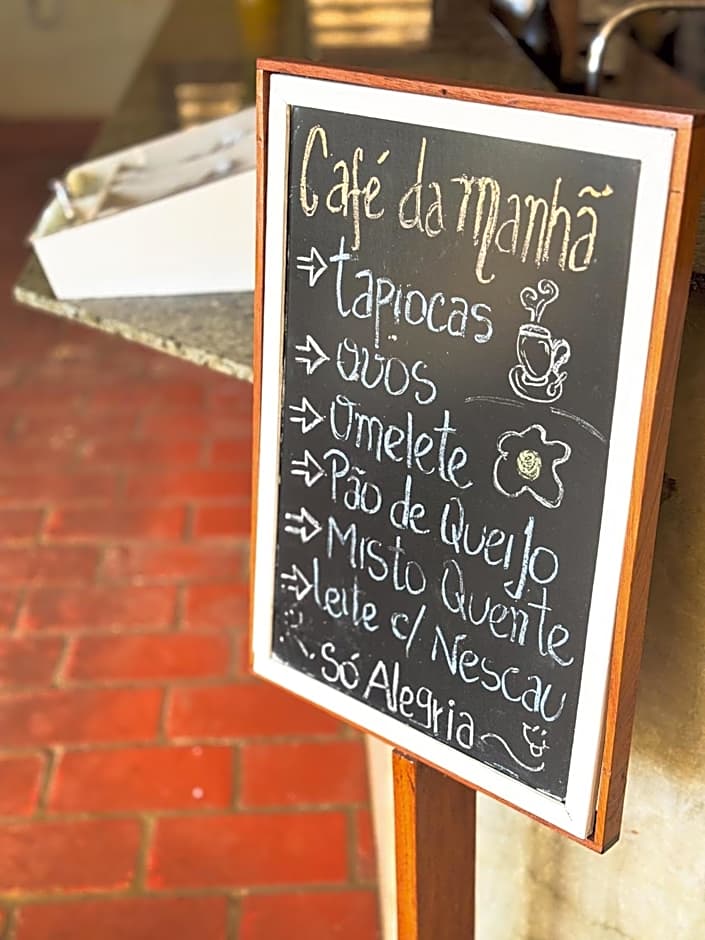 Café da Manhã
⇒ tapiocas
⇒ ovos
⇒ Omelete
⇒ Pão de Queijo
⇒ Misto Quente
⇒ leite c/ Nescau
Só Alegria